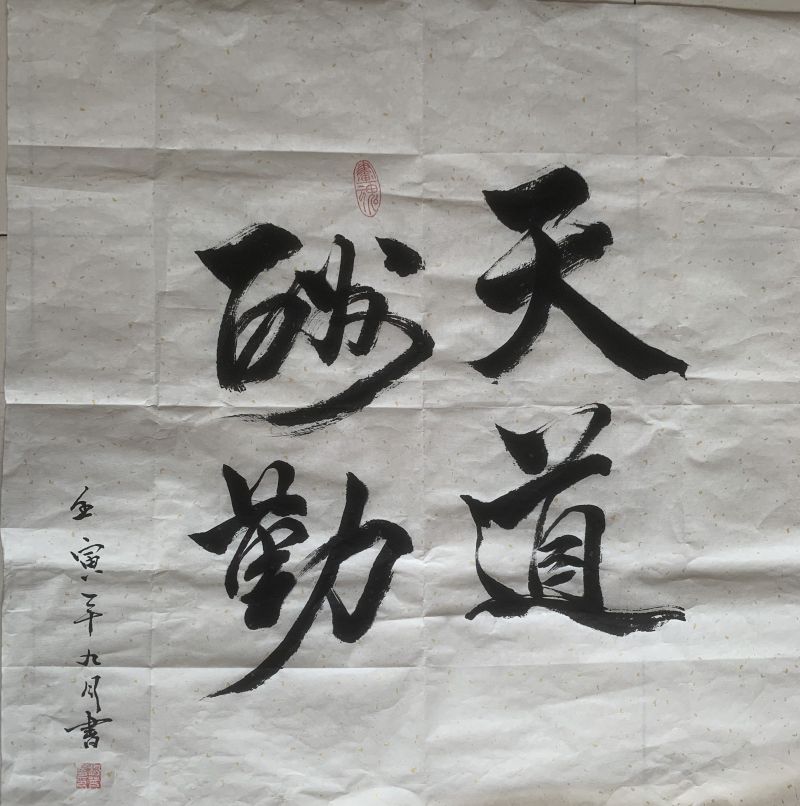 天道
酬勤
壬寅年九月書